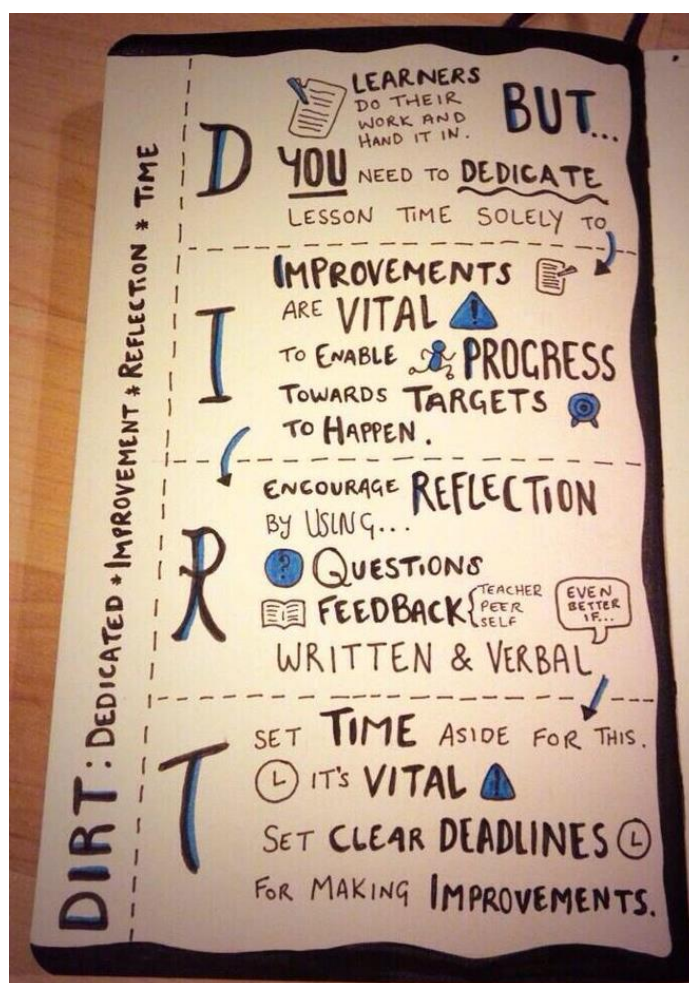 DIRT: DEDICATED * IMPROVEMENT * REFLECTION * TIME
D
LEARNERS
DO THEIR
WORK AND
HAND IT IN.
BUT...
YOU NEED TO DEDICATE
LESSON TIME SOLELY TO
I
IMPROVEMENTS
ARE VITAL
TO ENABLE PROGRESS
TOWARDS TARGETS
TO HAPPEN.
R
ENCOURAGE REFLECTION
BY USING...
? QUESTIONS
FEEDBACK { TEACHER
PEER
SELF
EVEN
BETTER
IF...
WRITTEN & VERBAL
T
SET TIME ASIDE FOR THIS.
IT'S VITAL
SET CLEAR DEADLINES
FOR MAKING IMPROVEMENTS.